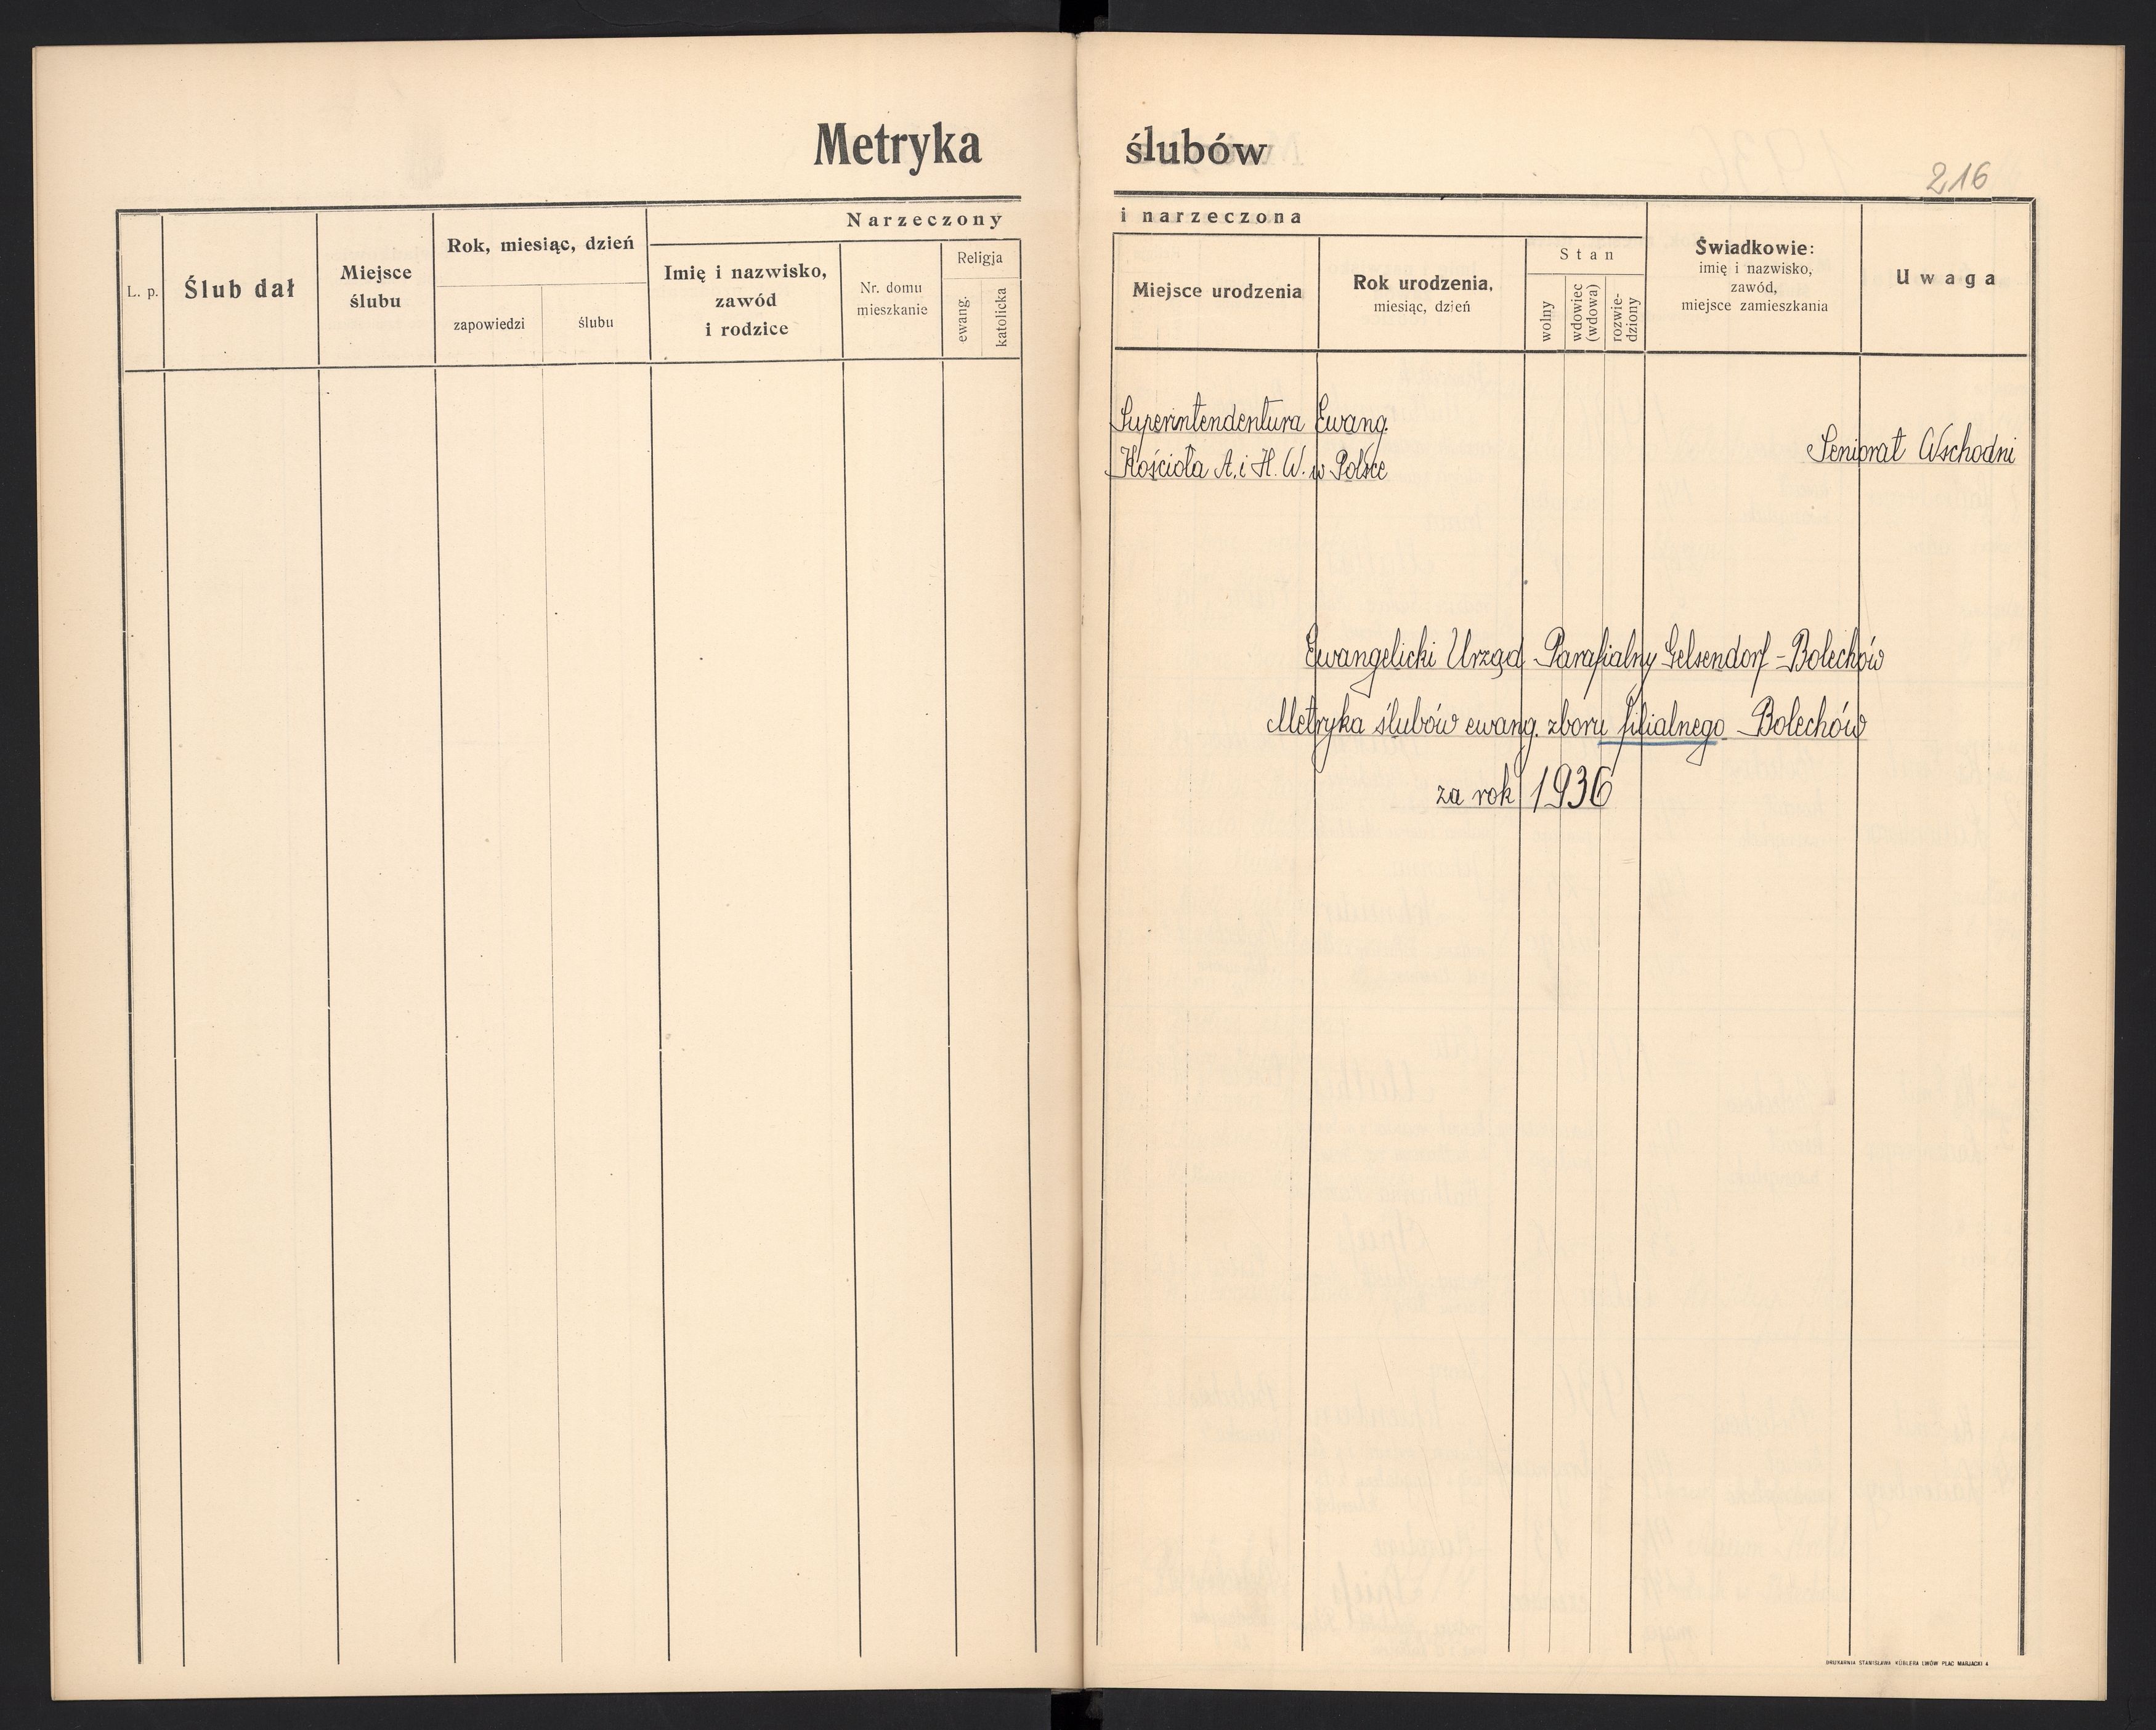 Metryka
Narzeczony
L. p.
Ślub dał
Miejsce
ślubu
Rok, miesiąc, dzień
zapowiedzi
ślubu
Imię i nazwisko,
zawód
i rodzice
Nr. domu
mieszkanie
Religja
ewang.
katolicka
ślubów
216
i narzeczona
Miejsce urodzenia
Rok urodzenia,
miesiąc, dzień
Stan
wolny
wdowiec
(wdowa)
rozwie-
dziony
Świadkowie:
imię i nazwisko,
zawód,
miejsce zamieszkania
Uwaga
Superintendentura Ewang.
Kościoła A. i H. W. w Polsce
Seniorat Wschodni
Ewangelicki Urząd Parafialny Gelsendorf - Bolechów
Metryka ślubów ewang. zboru filialnego Bolechów
za rok 1936
DRUKARNIA STANISŁAWA KÜBLERA LWÓW PLAC MARJACKI 4